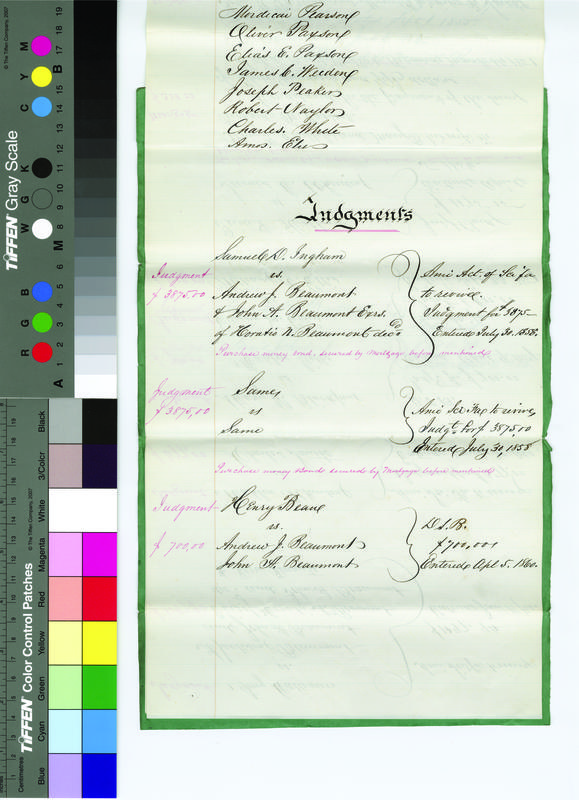 Mordecai Pearson
Oliver Paxson
Elias E. Paxson
James C. Weeden
Joseph Peaker
Robert Naylor
Charles. White
Amos. Elie
Judgments
Samuel D. Ingham
vs.
Andrew J. Beaumont
& John A. Beaumont Exrs.
of Horatio N. Beaumont decd.
Judgment
$3875,00
Amic Act. of Sci fa
to revive.
Judgment for $3875—
Entered July 30. 1858.
Purchase money bond, secured by Mortgage before mentioned
Judgment
$3875,00
Same
vs
Same
Amic Sci Fa to revive
Judgt. for $3875,00
Entered July 30, 1858
Purchase money Bond secured by Mortgage before mentioned
Judgment
$700,00
Henry Beans
vs.
Andrew J. Beaumont
John A. Beaumont
D.S.B.
$700,00
Entered Apl 5. 1860.
TIFFEN Gray Scale
© The Tiffen Company, 2007
R G B W G K C Y M
A 1 2 3 4 5 6 M 8 9 10 11 12 13 14 15 B 17 18 19
TIFFEN Color Control Patches
© The Tiffen Company, 2007
Blue Cyan Green Yellow Red Magenta White 3/Color Black
Centimetres